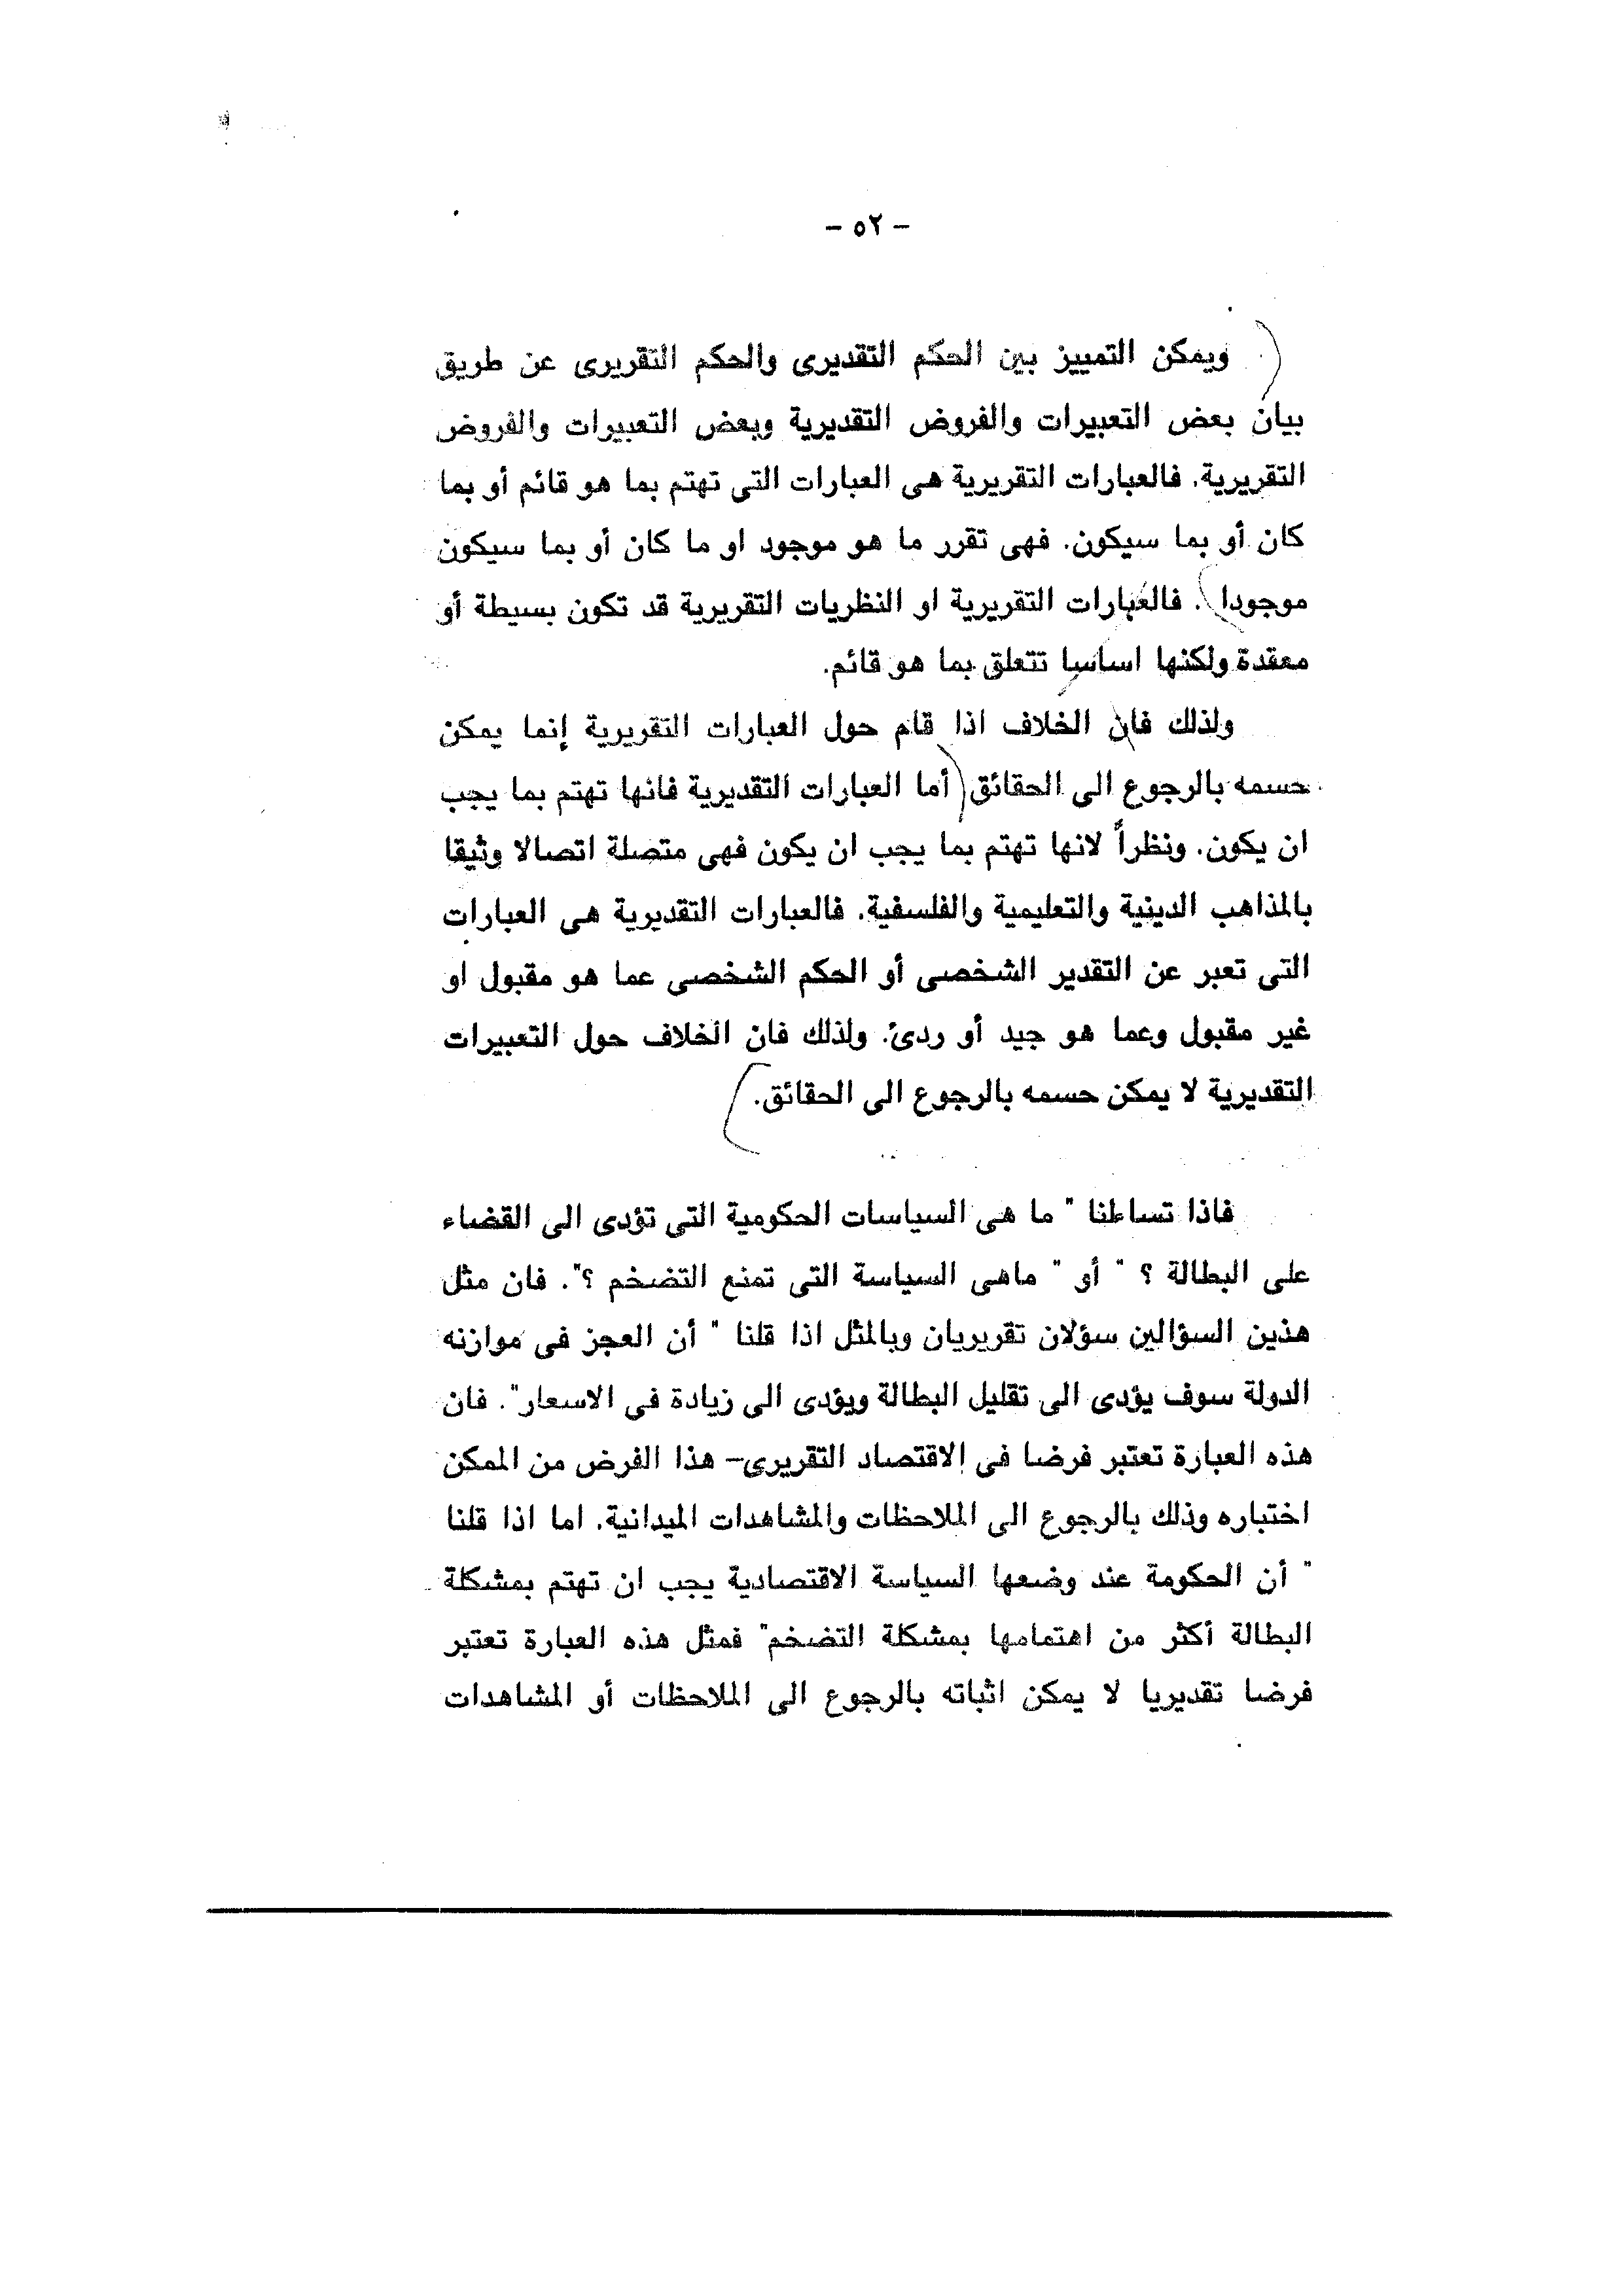 - ٥٢ -
ويمكن التمييز بين الحكم التقديرى والحكم التقريرى عن طريق
بيان بعض التعبيرات والفروض التقديرية وبعض التعبيرات والفروض
التقريرية. فالعبارات التقريرية هى العبارات التى تهتم بما هو قائم أو بما
كان أو بما سيكون. فهى تقرر ما هو موجود او ما كان أو بما سيكون
موجودا . فالعبارات التقريرية او النظريات التقريرية قد تكون بسيطة أو
معقدة ولكنها اساسا تتعلق بما هو قائم.
ولذلك فان الخلاف اذا قام حول العبارات التقريرية إنما يمكن
حسمه بالرجوع الى الحقائق (أما العبارات التقديرية فانها تهتم بما يجب
ان يكون. ونظراً لانها تهتم بما يجب ان يكون فهى متصلة اتصالا وثيقا
بالمذاهب الدينية والتعليمية والفلسفية. فالعبارات التقديرية هى العبارات
التى تعبر عن التقدير الشخصى أو الحكم الشخصى عما هو مقبول او
غير مقبول وعما هو جيد أو ردئ. ولذلك فان الخلاف حول التعبيرات
التقديرية لا يمكن حسمه بالرجوع الى الحقائق.
فاذا تساءلنا " ما هى السياسات الحكومية التى تؤدى الى القضاء
على البطالة ؟ " أو " ماهى السياسة التى تمنع التضخم ؟". فان مثل
هذين السؤالين سؤلان تقريريان وبالمثل اذا قلنا " أن العجز فى موازنه
الدولة سوف يؤدى الى تقليل البطالة ويؤدى الى زيادة فى الاسعار". فان
هذه العبارة تعتبر فرضا فى الاقتصاد التقريرى- هذا الفرض من الممكن
اختباره وذلك بالرجوع الى الملاحظات والمشاهدات الميدانية. اما اذا قلنا
" أن الحكومة عند وضعها السياسة الاقتصادية يجب ان تهتم بمشكلة
البطالة أكثر من اهتمامها بمشكلة التضخم" فمثل هذه العبارة تعتبر
فرضا تقديريا لا يمكن اثباته بالرجوع الى الملاحظات أو المشاهدات